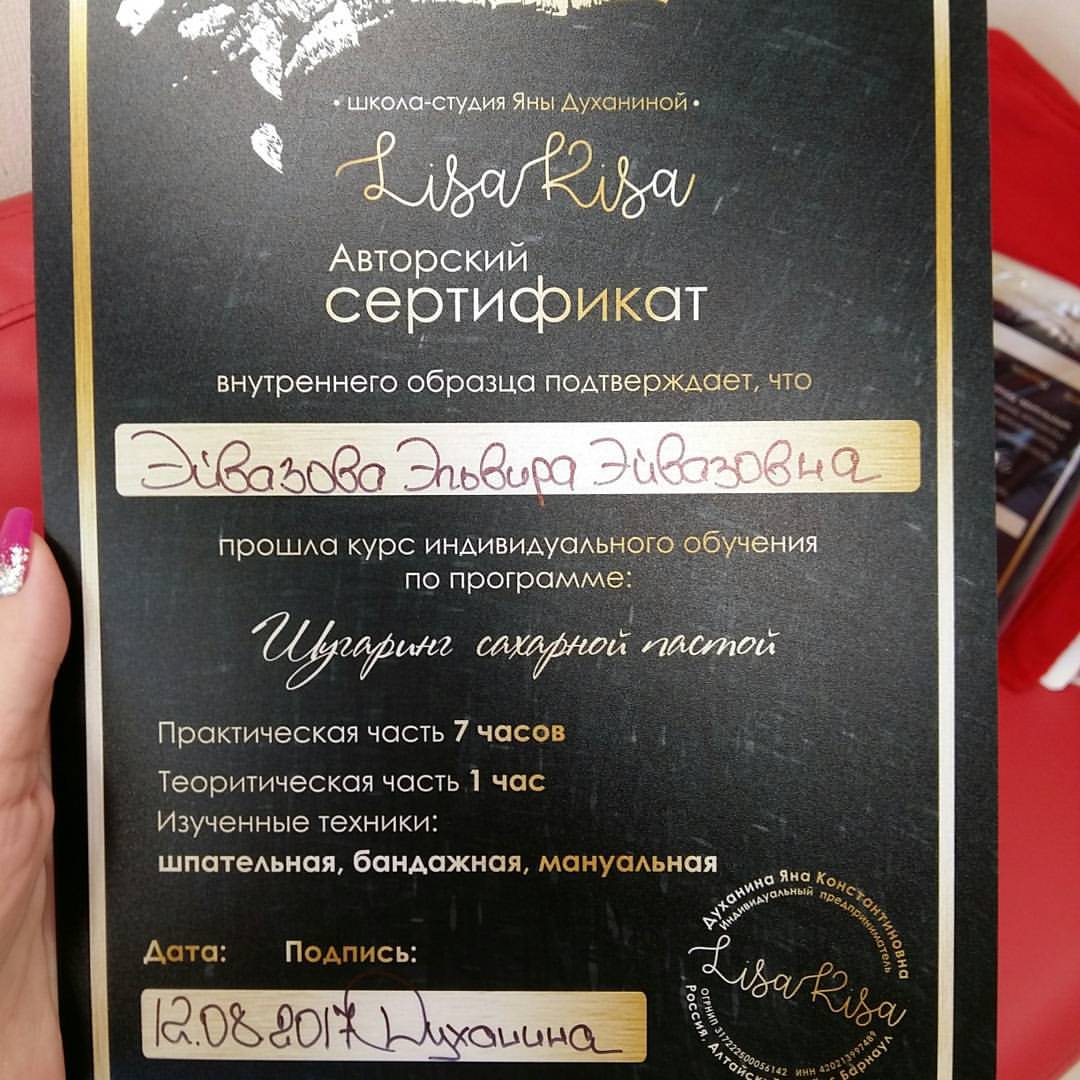 • школа-студия Яны Духаниной •
Lisa Kisa
Авторский
сертификат
внутреннего образца подтверждает, что
Эйвазова Эльвира Эйвазовна
прошла курс индивидуального обучения
по программе:
Шугаринг сахарной пастой
Практическая часть 7 часов
Теоритическая часть 1 час
Изученные техники:
шпательная, бандажная, мануальная
Дата: Подпись:
12.08.2017 Духанина
Духанина Яна Константиновна
Индивидуальный предприниматель
Lisa Kisa
ОГРНИП 317222500056142 ИНН 420213997489
Россия, Барнаул